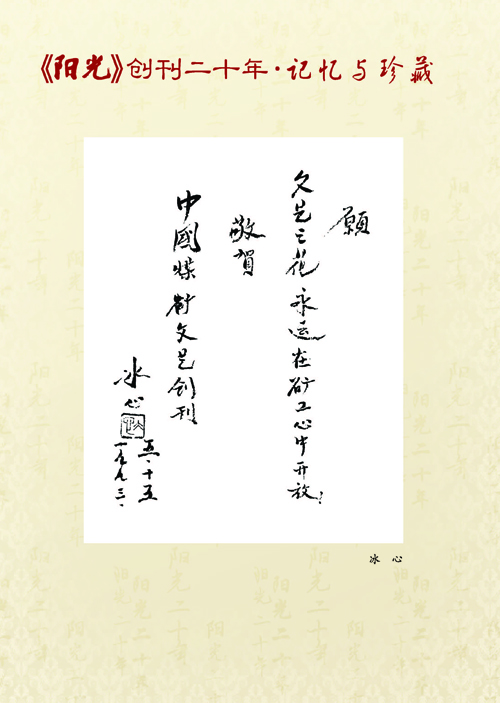 《阳光》创刊二十年·记忆与珍藏
願
文艺之花永远在矿工心中开放！
敬賀
中國煤矿文艺创刊
冰心
一九九三.
五.十五
冰 心